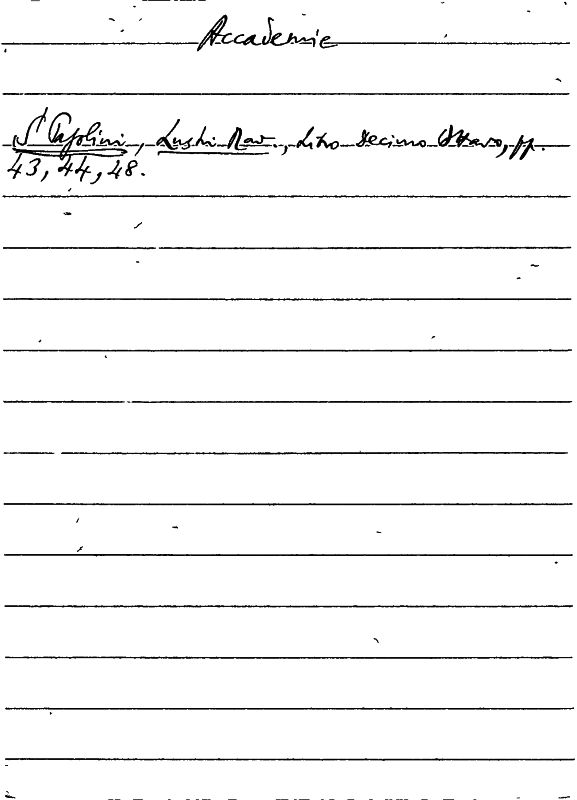 Accademie
S. Pasolini, Lustri Rav., Libro Decimo Ottavo, pp.
43, 44, 48.